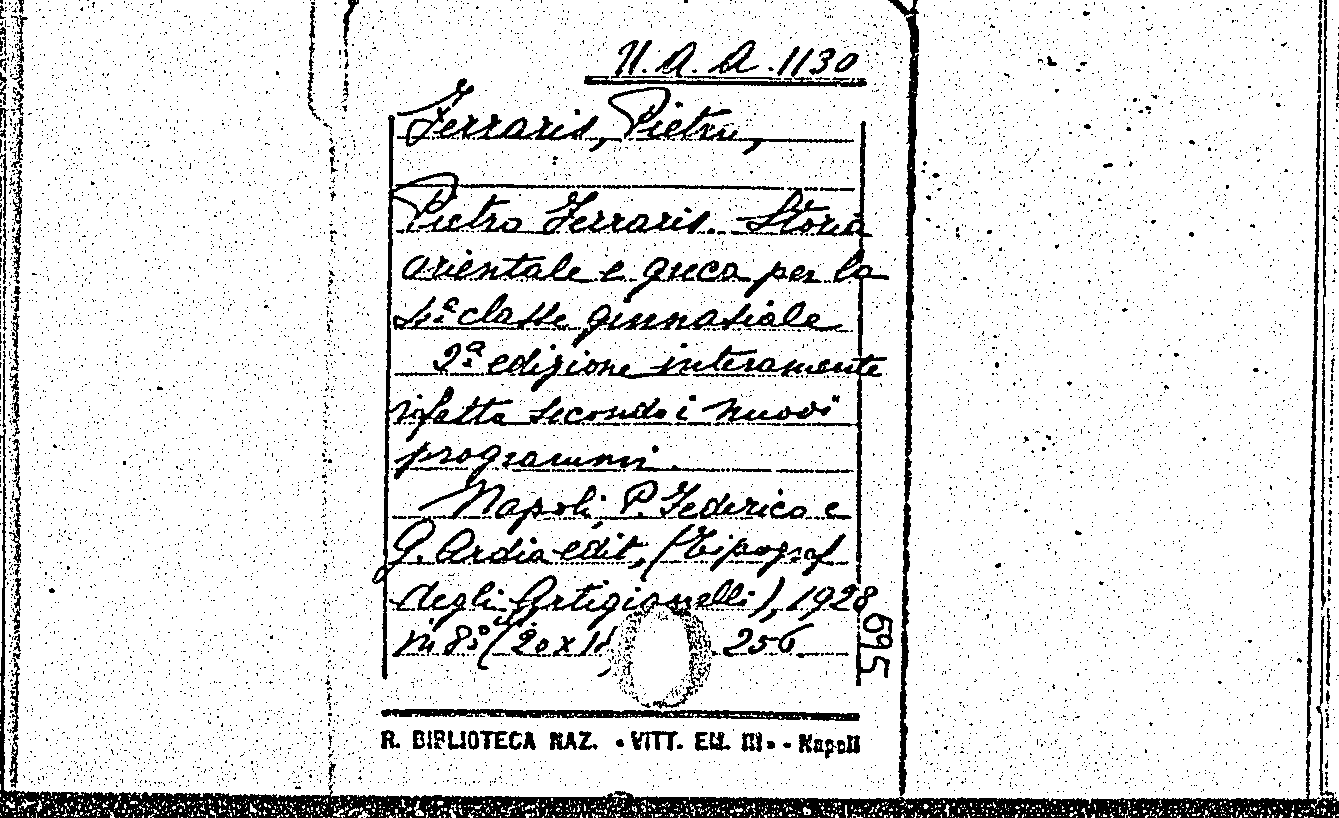 N. A. A. 1130
Ferraris, Pietro,
Pietro Ferraris. Storia
orientale e greca per la
4ª classe ginnasiale
2ª edizione interamente
rifatta secondo i nuovi
programmi.
Napoli, P. Federico e
G. Ardia edit, (Tipograf
degli Artigianelli), 1928
in 8º (20 x 256.
695
R. BIBLIOTECA NAZ. • VITT. EM. III • - Napoli